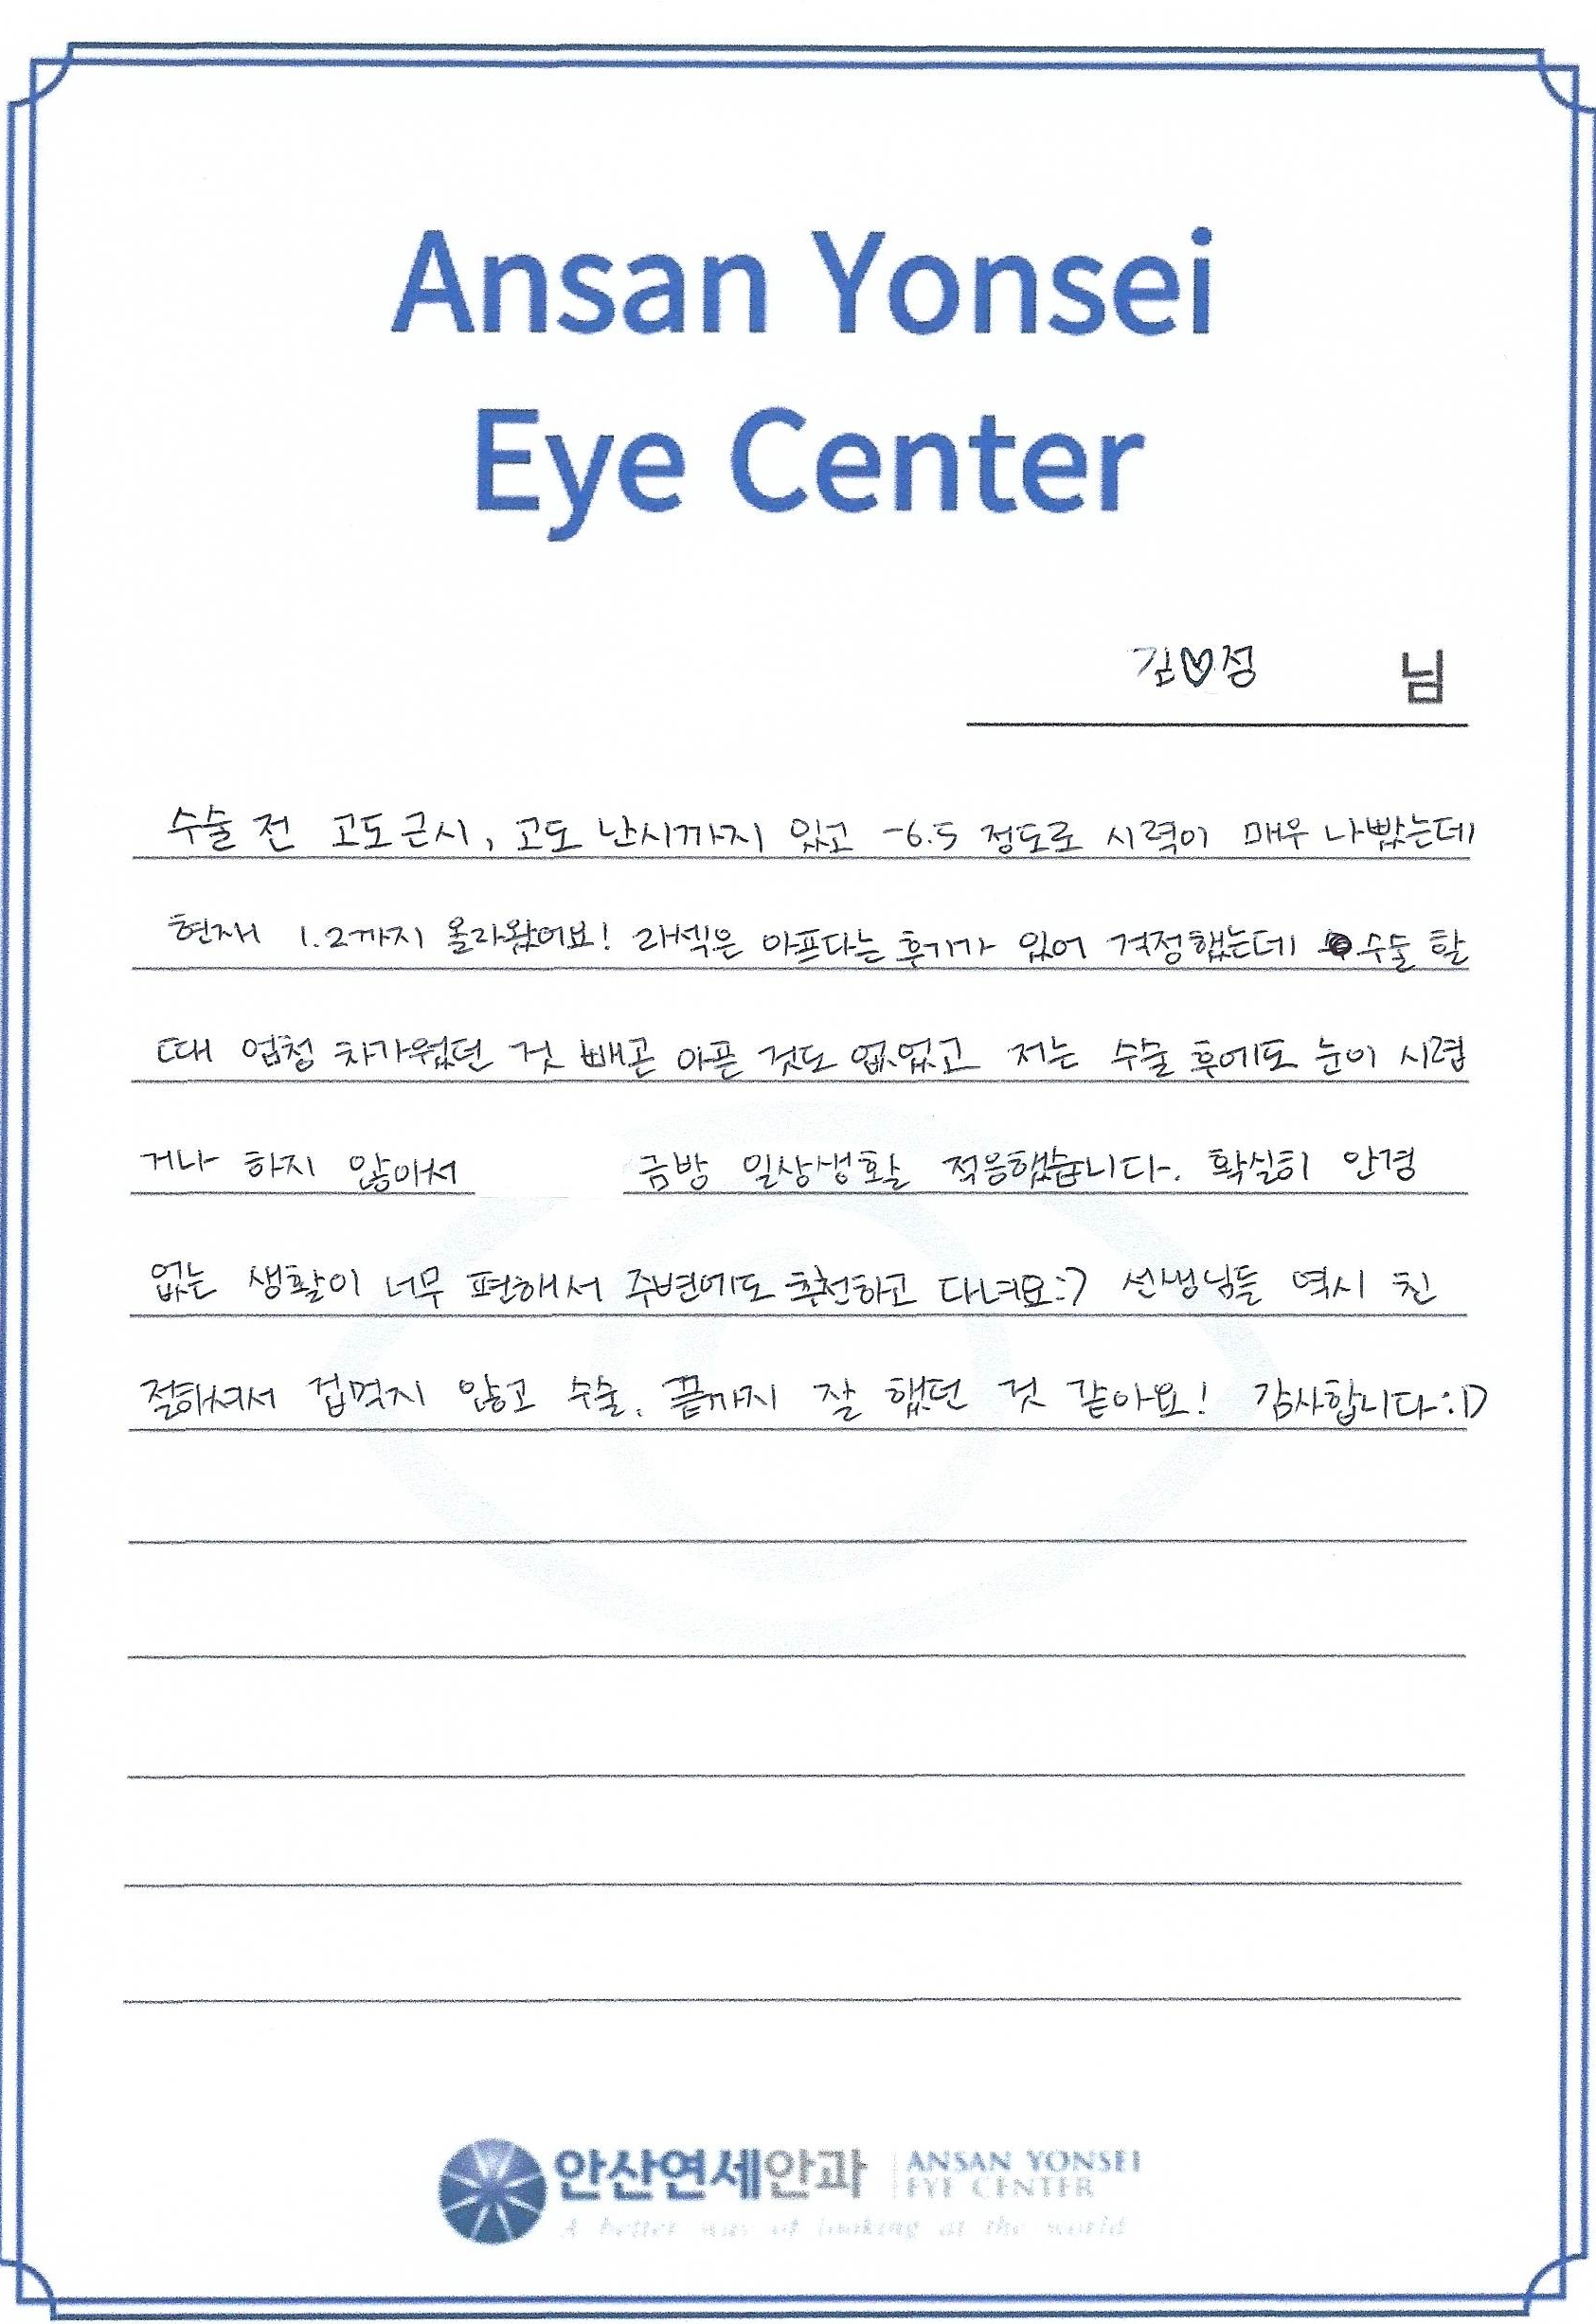 Ansan Yonsei
Eye Center
김♡정 님
수술 전 고도근시, 고도 난시까지 있고 -6.5 정도로 시력이 매우 나빴는데
현재 1.2까지 올라왔어요! 라섹은 아프다는 후기가 있어 걱정했는데 수술 할
때 엄청 차가웠던 것 빼곤 아픈 것도 없었고 저는 수술 후에도 눈이 시렵
거나 하지 않아서 금방 일상생활 적응했습니다. 확실히 안경
없는 생활이 너무 편해서 주변에도 추천하고 다녀요:) 선생님들 역시 친
절하셔서 겁먹지 않고 수술. 끝까지 잘 했던 것 같아요! 감사합니다:D
안산연세안과 ANSAN YONSEI
EYE CENTER
A better way of looking at the world